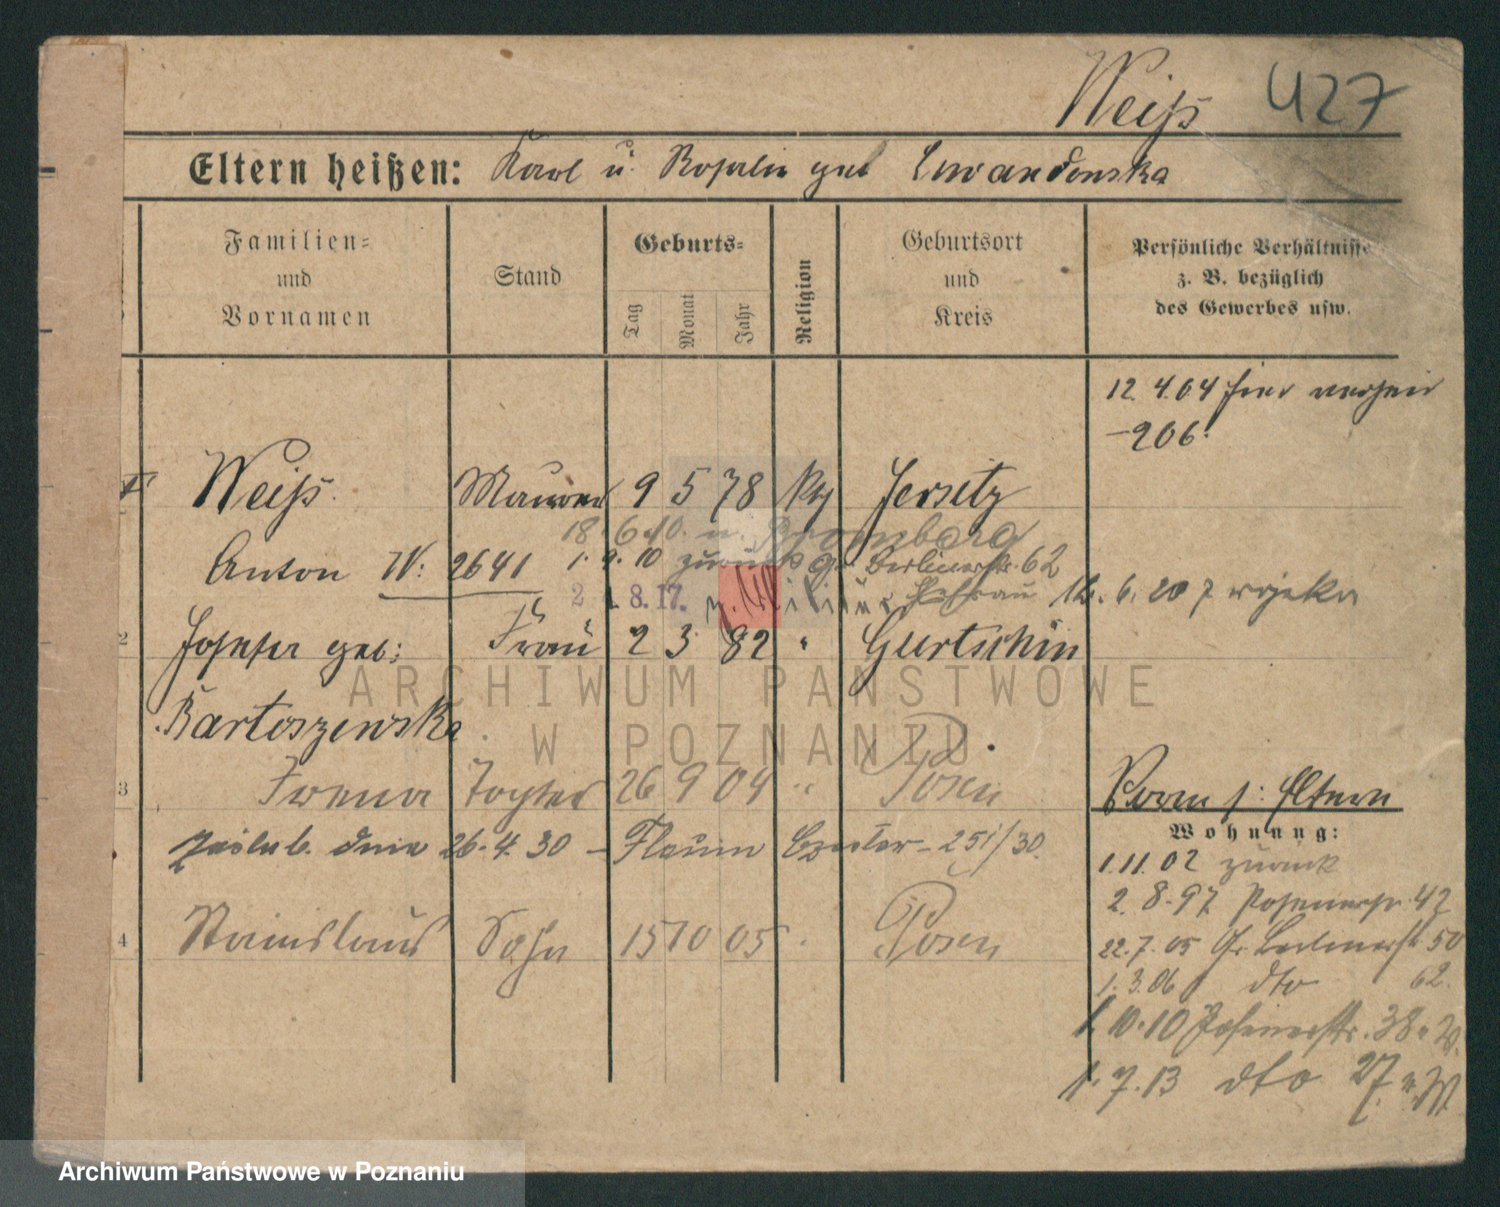 Weiß 427
Eltern heißen: Karl u. Rosalie geb Lewandowska
Familien-
und
Vornamen
Stand
Geburts-
Tag
Monat
Jahr
Religion
Geburtsort
und
Kreis
Persönliche Verhältnisse
z. B. bezüglich
des Gewerbes usw.
12. 4. 04 hier
-206.
Weiß Maurer 9 5 78 Jersitz
18. 6. 10. n. Bromberg
Anton IV: 2641 1. 9. 10 zurück gr Berlinerstr. 62
2 8. 17. z. Militär
2 Josefa geb: Frau 2 3 82 " Gurtschin
Bartoszewska
3 Irena Tochter 26 9 04 " Posen
zaślub. dnia 26. 4. 30 -
251/30.
4 Stanislaus Sohn 15 10 05 Posen
Vorm s: Eltern
Wohnung:
1. 11. 02 zurück
2. 8. 97 Posenerstr. 42
22. 7. 05 Gr. Berlinerstr 50
1. 3. 06 dto 62.
1. 10. 10 Posenerstr. 38
1. 7. 13 dto 27
ARCHIWUM PAŃSTWOWE
W POZNANIU
Archiwum Państwowe w Poznaniu